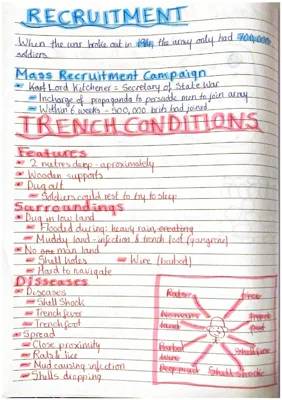 RECRUITMENT
When the war broke out in 1914, the army only had 700,000
soldiers.
Mass Recruitment Campaign
Earl Lord Kitchener = Secretary of State War
Incharge of propaganda to persuade men to join army
Within 6 weeks - 500,000 brits had joined
TRENCH CONDITIONS
Features
2 metres deep - aproximately
Wooden supports
Dug out
Soldiers could rest to try to sleep
Surroundings
Dug in low land
Flooded during heavy rain, creating
Muddy land - infection & trench foot (gangrene)
No man land
Shell holes Wire (barbed)
Hard to navigate
Disseases
Diseases
Shell Shock
Trench fever
Trench foot
Spread
Close proximity
Rats & lice
Mud causing infection
Shells dropping
Rats
Lice
No mans
land
Trench
Barbed
wire
Deep mud
Shell shock